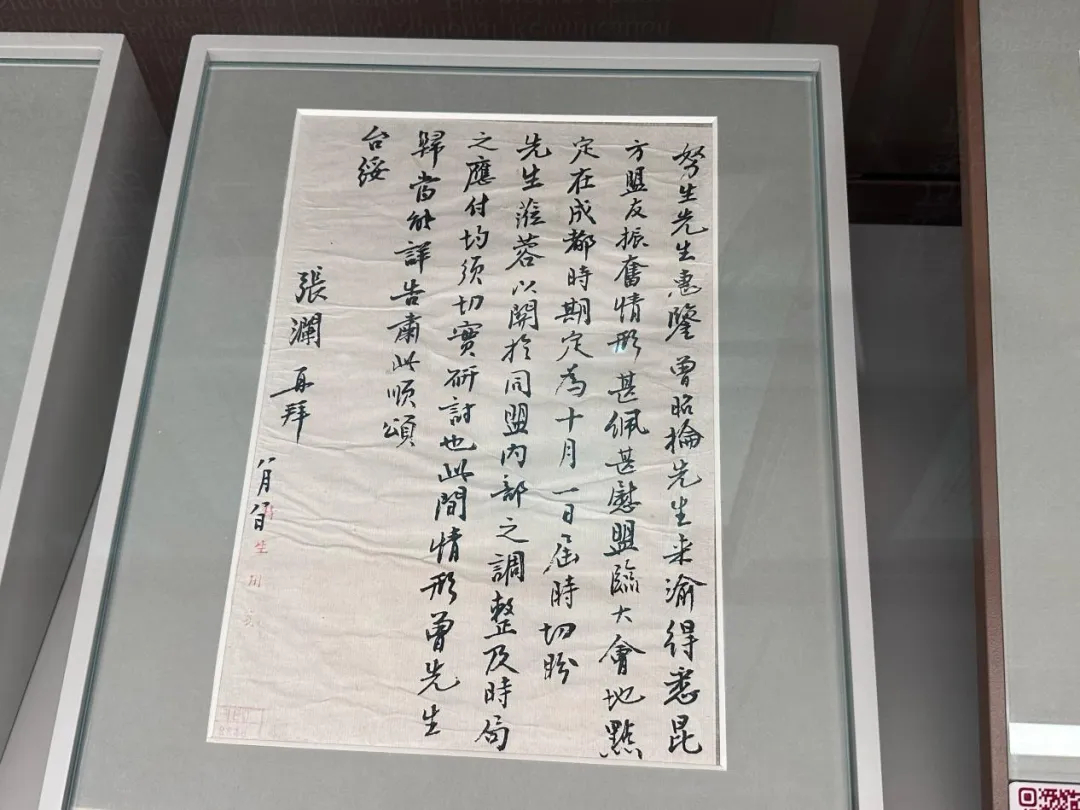 努生先生惠鑒曾昭掄先生来渝得悉昆
方盟友振奮情形甚佩甚慰盟臨大會地點
定在成都時期定為十月一日屆時切盼
先生蒞蓉以關於同盟內部之調整及時局
之應付均須切實研討也此間情形曾先生
歸當能詳告肅此順頌
台綏
張瀾再拜
八月